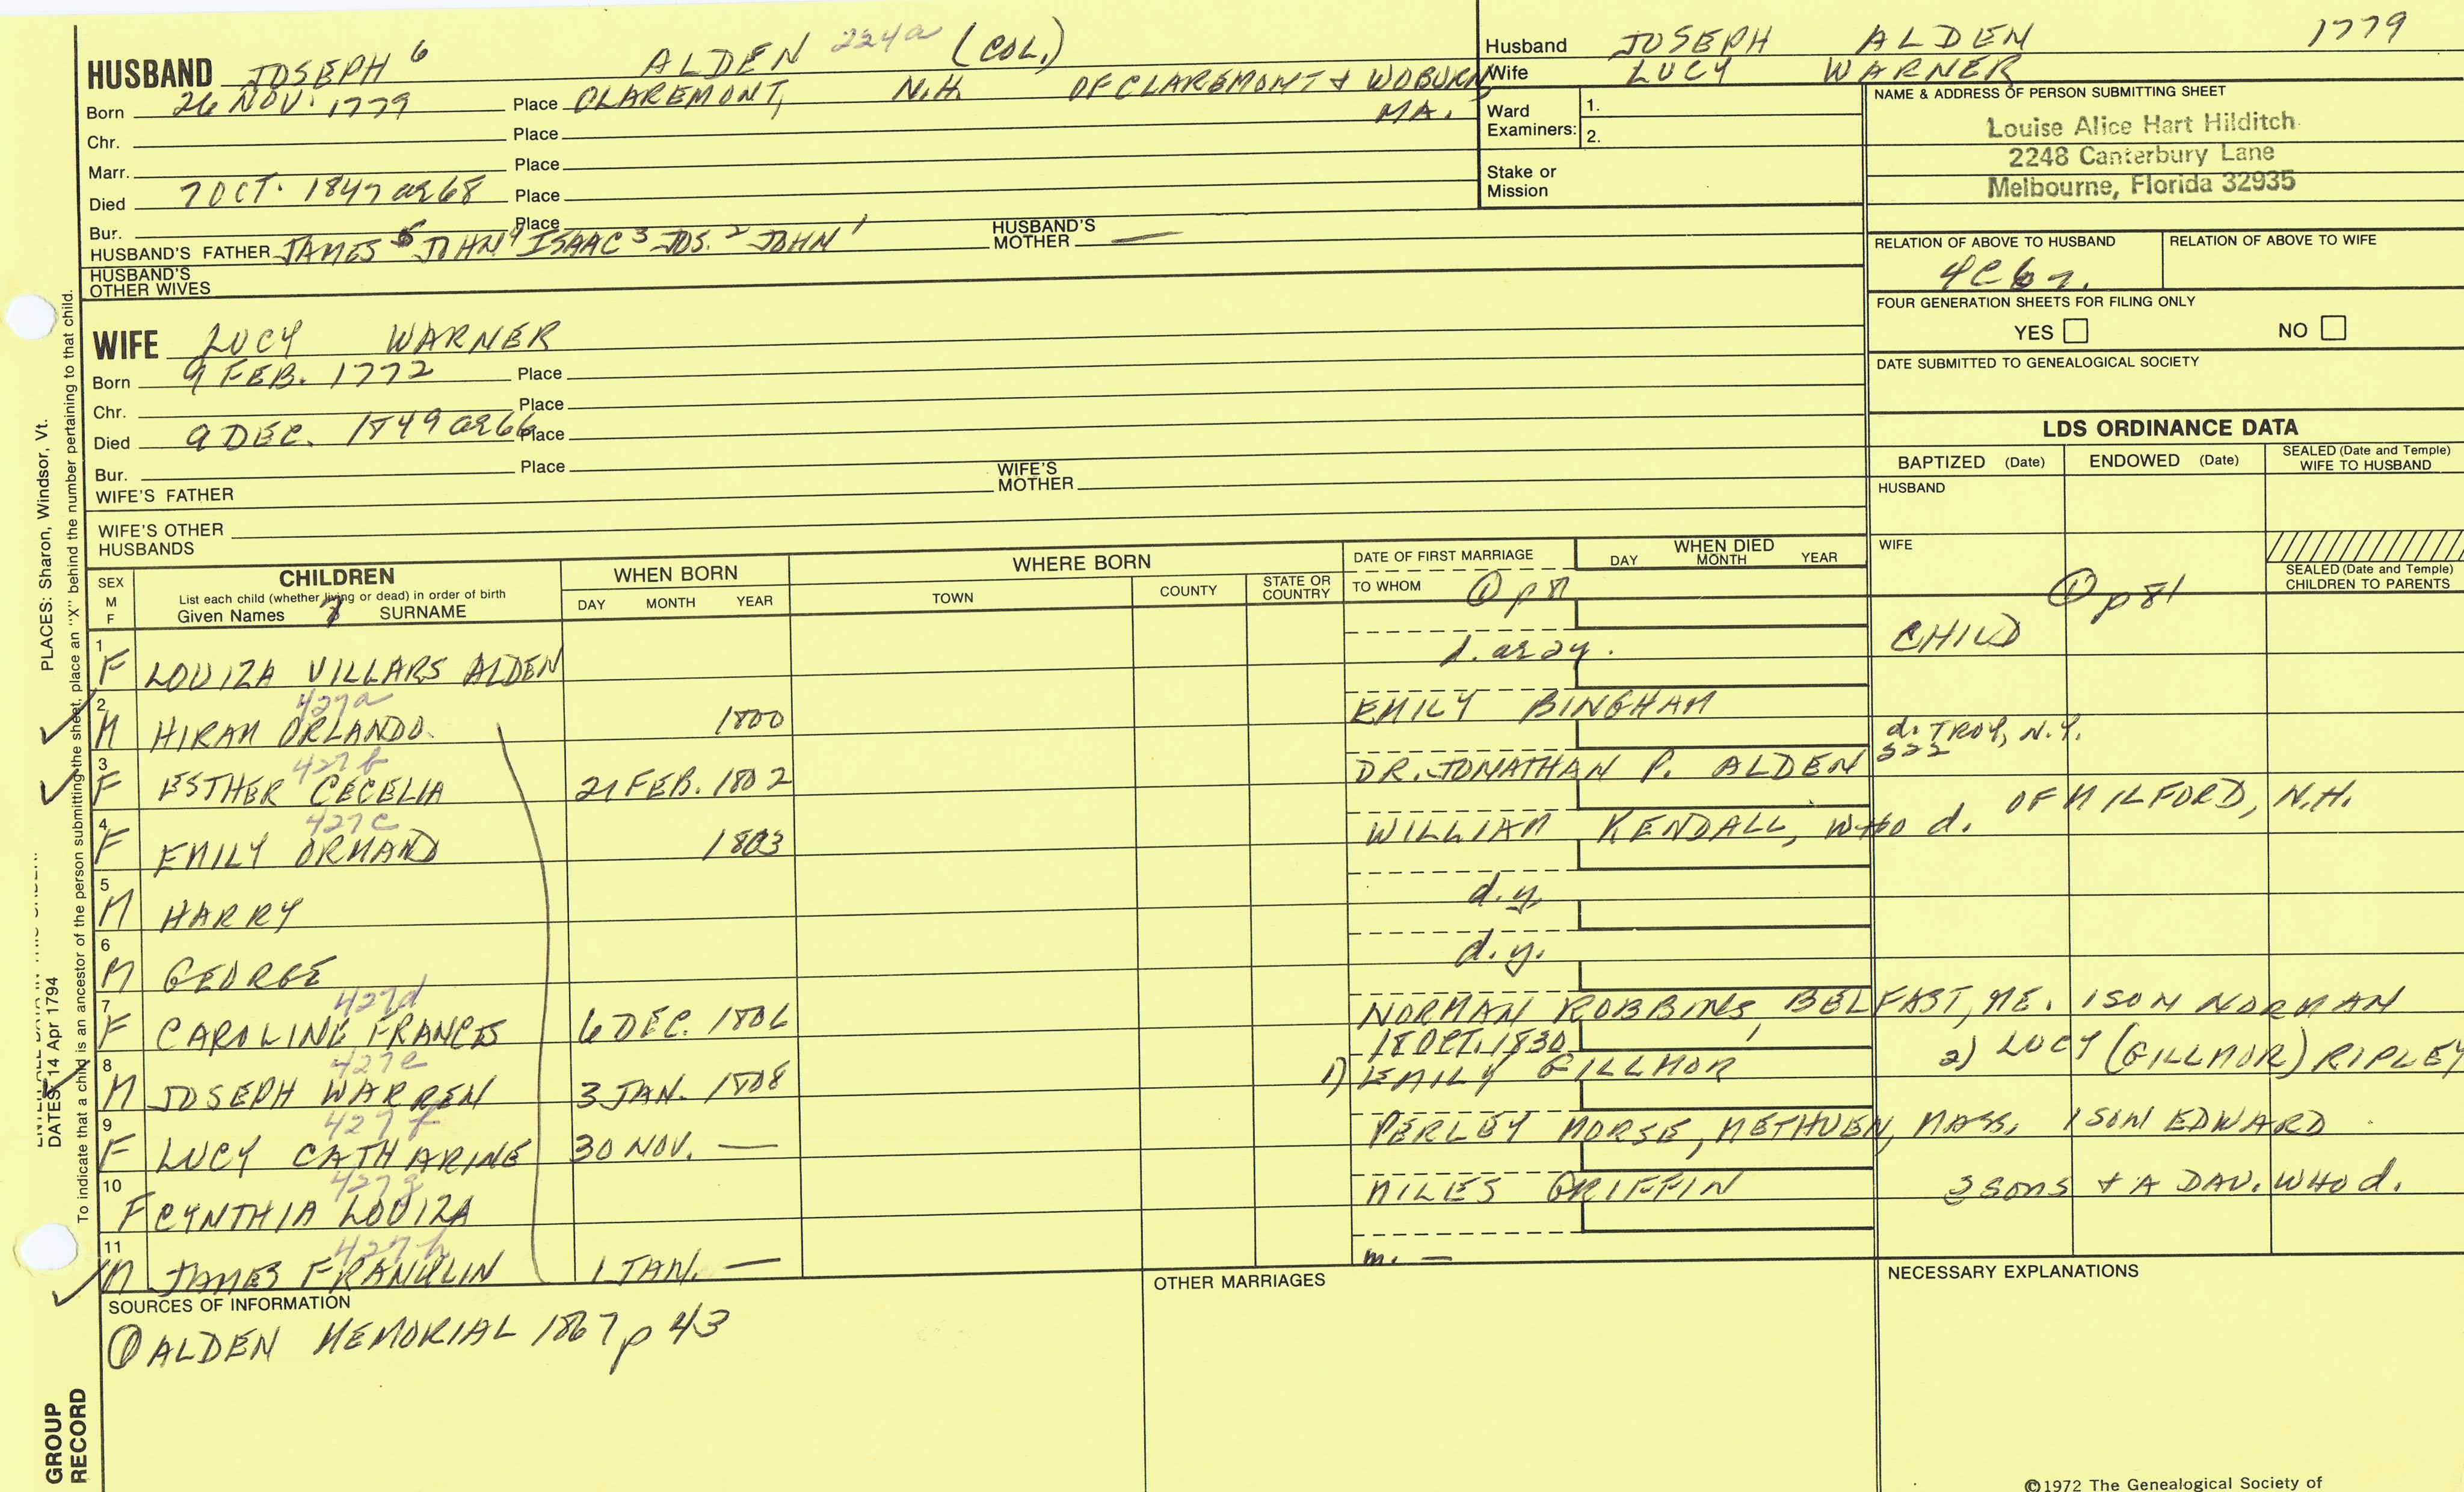 HUSBAND JOSEPH 6 ALDEN 224a (COL.)
Born 26 NOV. 1779 Place CLAREMONT, N.H. OF CLAREMONT & WOBURN MA.
Chr. Place
Marr. Place
Died 7 OCT. 1847 ae 68 Place
Bur. Place
HUSBAND'S FATHER JAMES 5 JOHN 4 ISAAC 3 JOS. 2 JOHN 1 HUSBAND'S MOTHER —
HUSBAND'S OTHER WIVES
WIFE LUCY WARNER
Born 9 FEB. 1772 Place
Chr. Place
Died 9 DEC. 1849 ae 66 Place
Bur. Place
WIFE'S FATHER WIFE'S MOTHER
WIFE'S OTHER HUSBANDS
Husband JOSEPH ALDEN 1779
Wife LUCY WARNER
Ward Examiners: 1.
2.
Stake or Mission
NAME & ADDRESS OF PERSON SUBMITTING SHEET
Louise Alice Hart Hilditch
2248 Canterbury Lane
Melbourne, Florida 32935
RELATION OF ABOVE TO HUSBAND RELATION OF ABOVE TO WIFE
4C
FOUR GENERATION SHEETS FOR FILING ONLY
YES NO
DATE SUBMITTED TO GENEALOGICAL SOCIETY
LDS ORDINANCE DATA
BAPTIZED (Date) ENDOWED (Date) SEALED (Date and Temple) WIFE TO HUSBAND
HUSBAND
WIFE
SEALED (Date and Temple) CHILDREN TO PARENTS
① p 81
SEX M F
CHILDREN
List each child (whether living or dead) in order of birth
Given Names SURNAME
WHEN BORN
DAY MONTH YEAR
WHERE BORN
TOWN COUNTY STATE OR COUNTRY
DATE OF FIRST MARRIAGE
TO WHOM ① p 81
WHEN DIED
DAY MONTH YEAR
1 F LOUIZA VILLARS ALDEN CHILD
427a
2 M HIRAM ORLANDO 1800 EMILY BINGHAM d. TROY, N.Y.
427b
3 F ESTHER CECELIA 21 FEB. 1802 DR. JONATHAN P. ALDEN 522
427c
4 F EMILY ORMAND 1803 WILLIAM KENDALL, WHO d. OF MILFORD, N.H.
5 M HARRY d.y.
6 M GEORGE d.y.
427d
7 F CAROLINE FRANCES 6 DEC. 1806 NORMAN ROBBINS, BELFAST, ME. 1 SON NORMAN
427e
18 OCT. 1830
8 M JOSEPH WARREN 3 JAN. 1808 1) EMILY GILLMOR 2) LUCY (GILLMOR) RIPLEY
427f
9 F LUCY CATHARINE 30 NOV. — PERLEY MORSE, METHUEN, MASS. 1 SON EDWARD
427g
10 F CYNTHIA LOUIZA MILES GRIFFIN 3 SONS & A DAU. WHO d.
427h
11 M JAMES FRANKLIN 1 JAN. — m. —
SOURCES OF INFORMATION
① ALDEN MEMORIAL 1867 p 43
OTHER MARRIAGES
NECESSARY EXPLANATIONS
©1972 The Genealogical Society of
PLACES: Sharon, Windsor, Vt.
To indicate that a child is an ancestor of the person submitting the sheet, place an "X" behind the number pertaining to that child.
DATES: 14 Apr 1794
GROUP RECORD